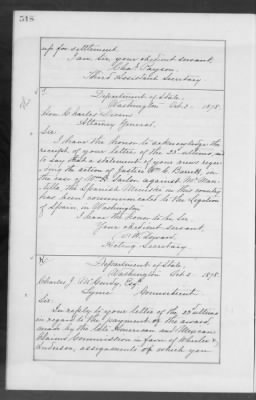 518
up for settlement.
I am, Sir, your obedient servant,
Chas. Payson,
Third Assistant Secretary.
Department of State,
Washington Oct. 2, 1878.
Charles Devens
Attorney General.
Sir:
I have the honor to acknowledge the
receipt of your letter of the ultimo, and
to say that a statement of your views regar-
ding the action of Justice Wm. C. Barrett, in
the case of against Mr. Man-
tilla, the Spanish Minister in this country
has been communicated to the Legation
of Spain, in Washington.
I have the honor to be, Sir,
Your obedient servant,
F. W. Seward,
Acting Secretary.
Department of State,
Washington Oct. 2, 1878.
Charles J. McCurdy, Esq.
Lyme Connecticut.
Sir:
In reply to your letter of the ultimo
in regard to the payment of the award
made by the late American and Mexican
Claims Commission in favor of
Anderson, assignments of which you